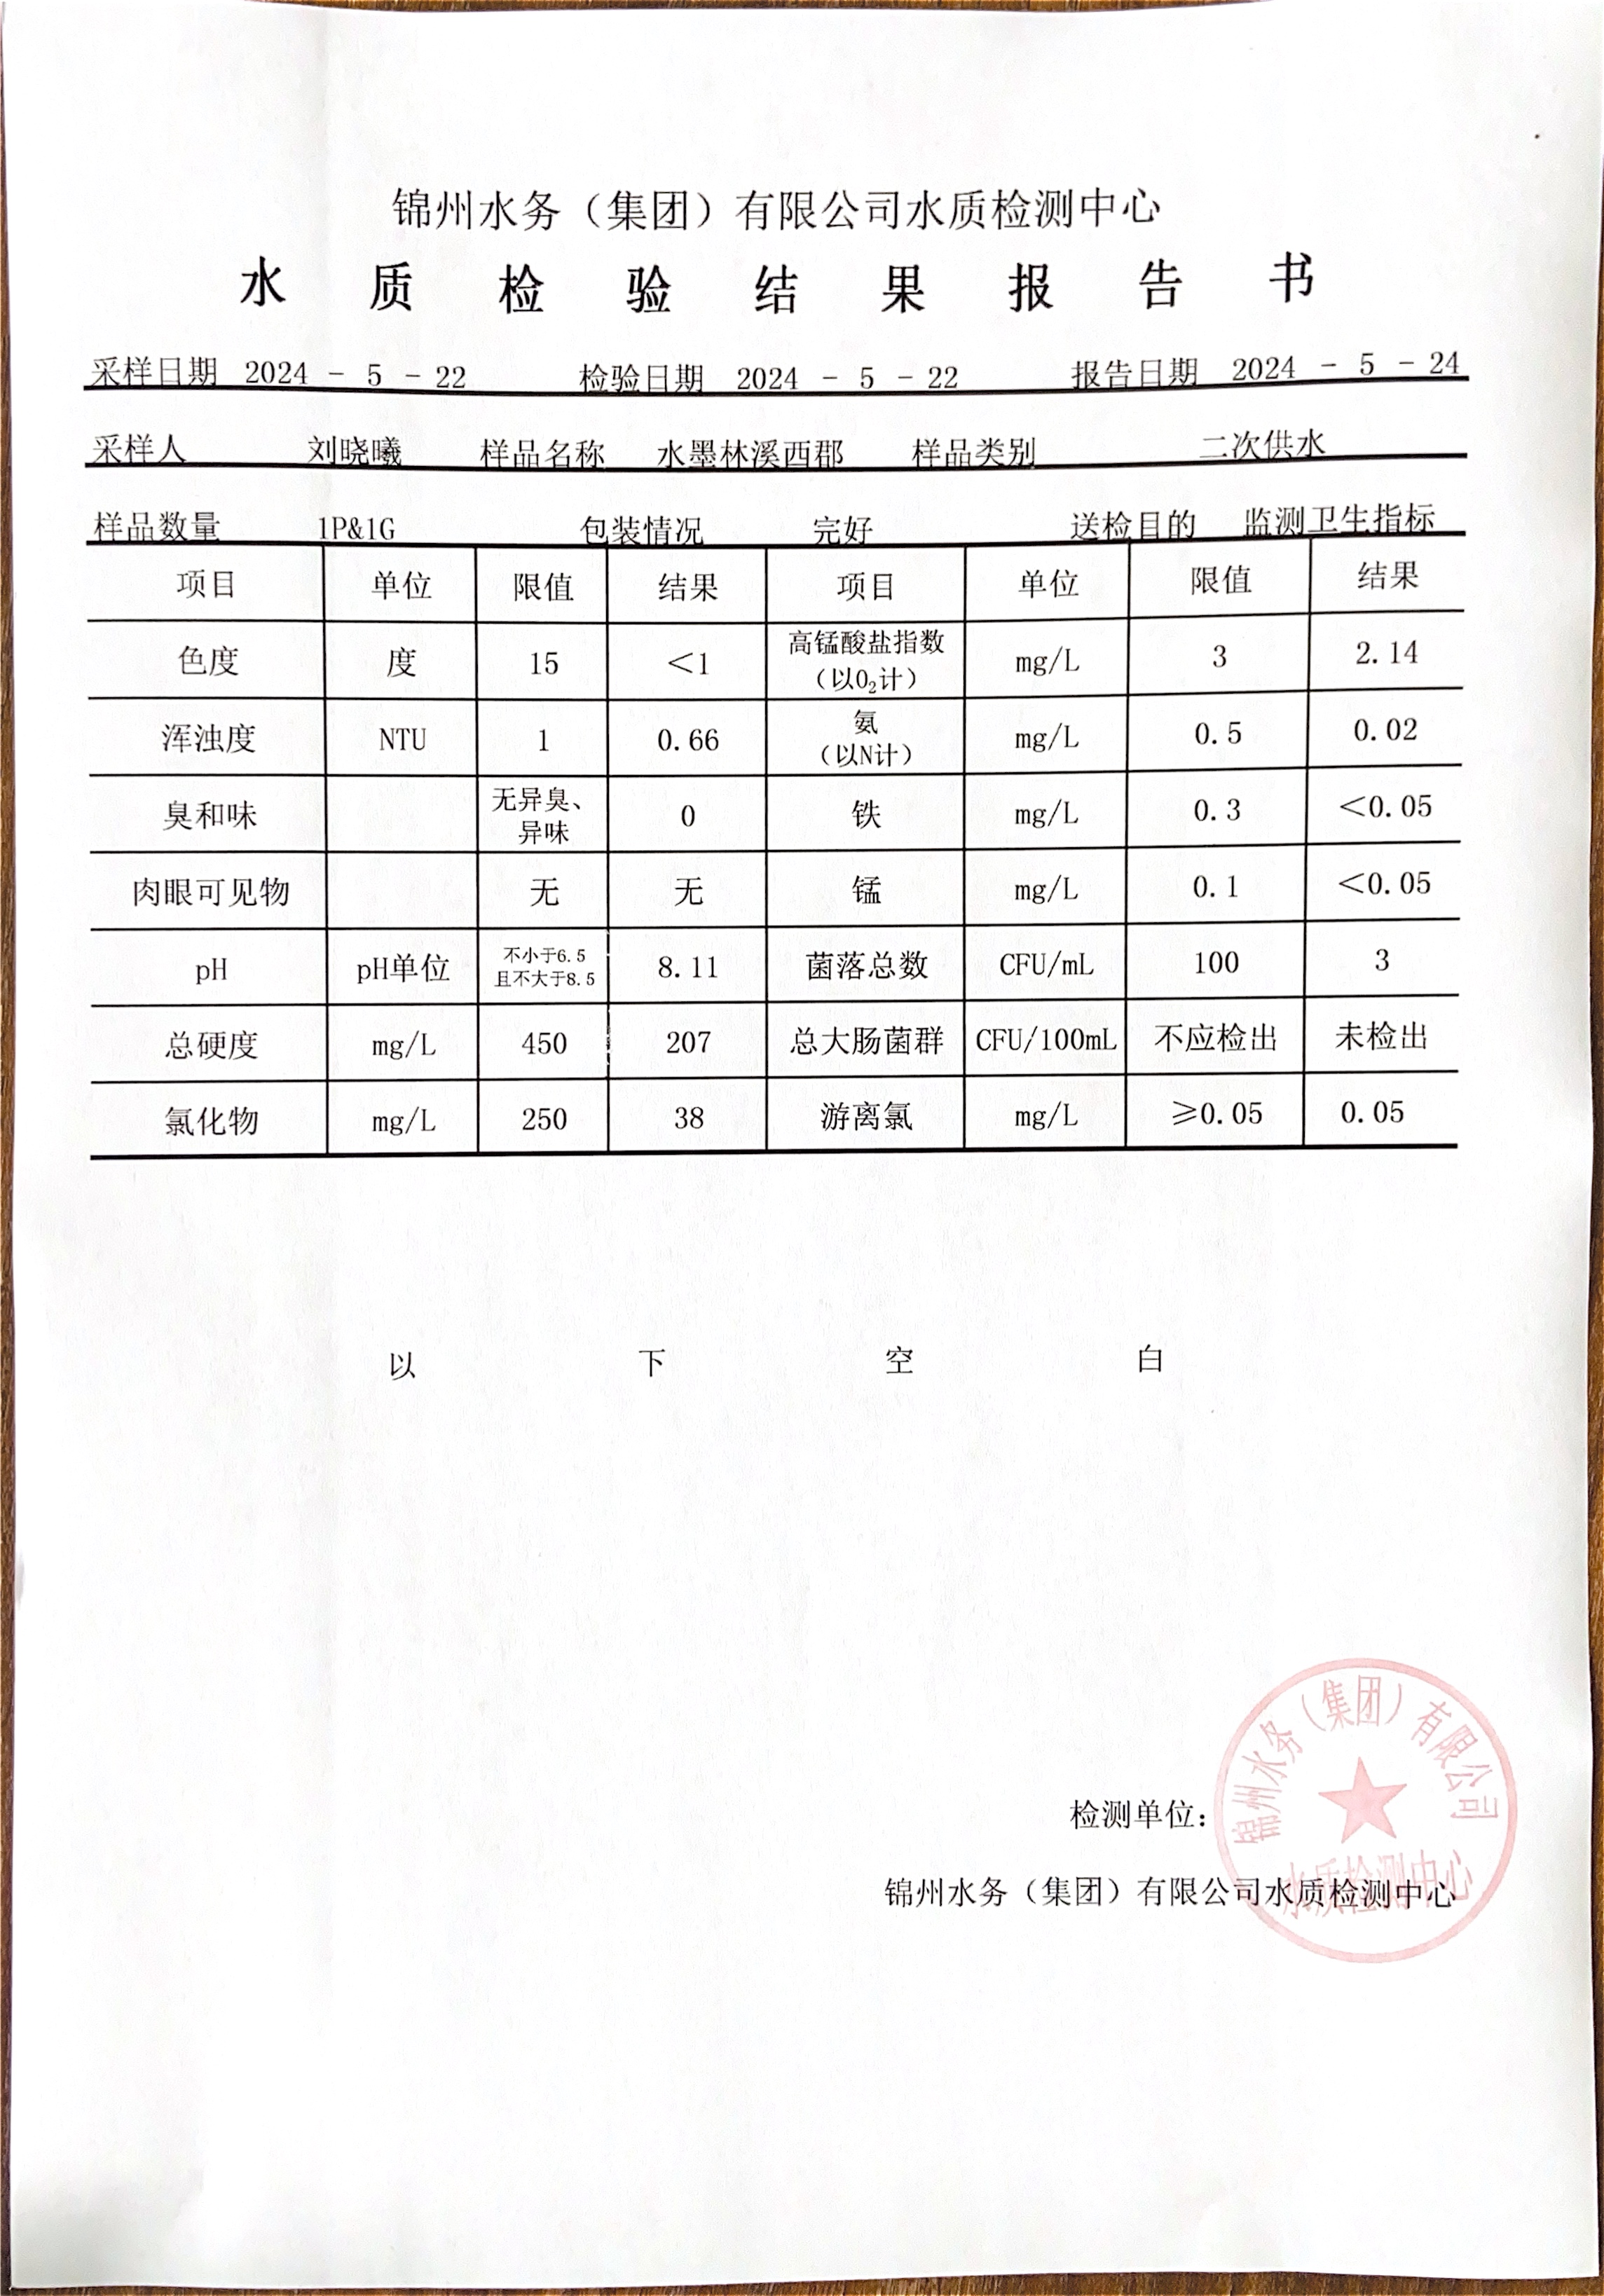 锦州水务（集团）有限公司水质检测中心
水质检验结果报告书
采样日期 2024 - 5 - 22 检验日期 2024 - 5 - 22 报告日期 2024 - 5 - 24
采样人 刘晓曦 样品名称 水墨林溪西郡 样品类别 二次供水
样品数量 1P&1G 包装情况 完好 送检目的 监测卫生指标
项目 单位 限值 结果 项目 单位 限值 结果
色度 度 15 <1 高锰酸盐指数（以O₂计） mg/L 3 2.14
浑浊度 NTU 1 0.66 氨（以N计） mg/L 0.5 0.02
臭和味 无异臭、异味 0 铁 mg/L 0.3 <0.05
肉眼可见物 无 无 锰 mg/L 0.1 <0.05
pH pH单位 不小于6.5且不大于8.5 8.11 菌落总数 CFU/mL 100 3
总硬度 mg/L 450 207 总大肠菌群 CFU/100mL 不应检出 未检出
氯化物 mg/L 250 38 游离氯 mg/L ≥0.05 0.05
以下空白
检测单位：
锦州水务（集团）有限公司水质检测中心
锦州水务（集团）有限公司
水质检测中心